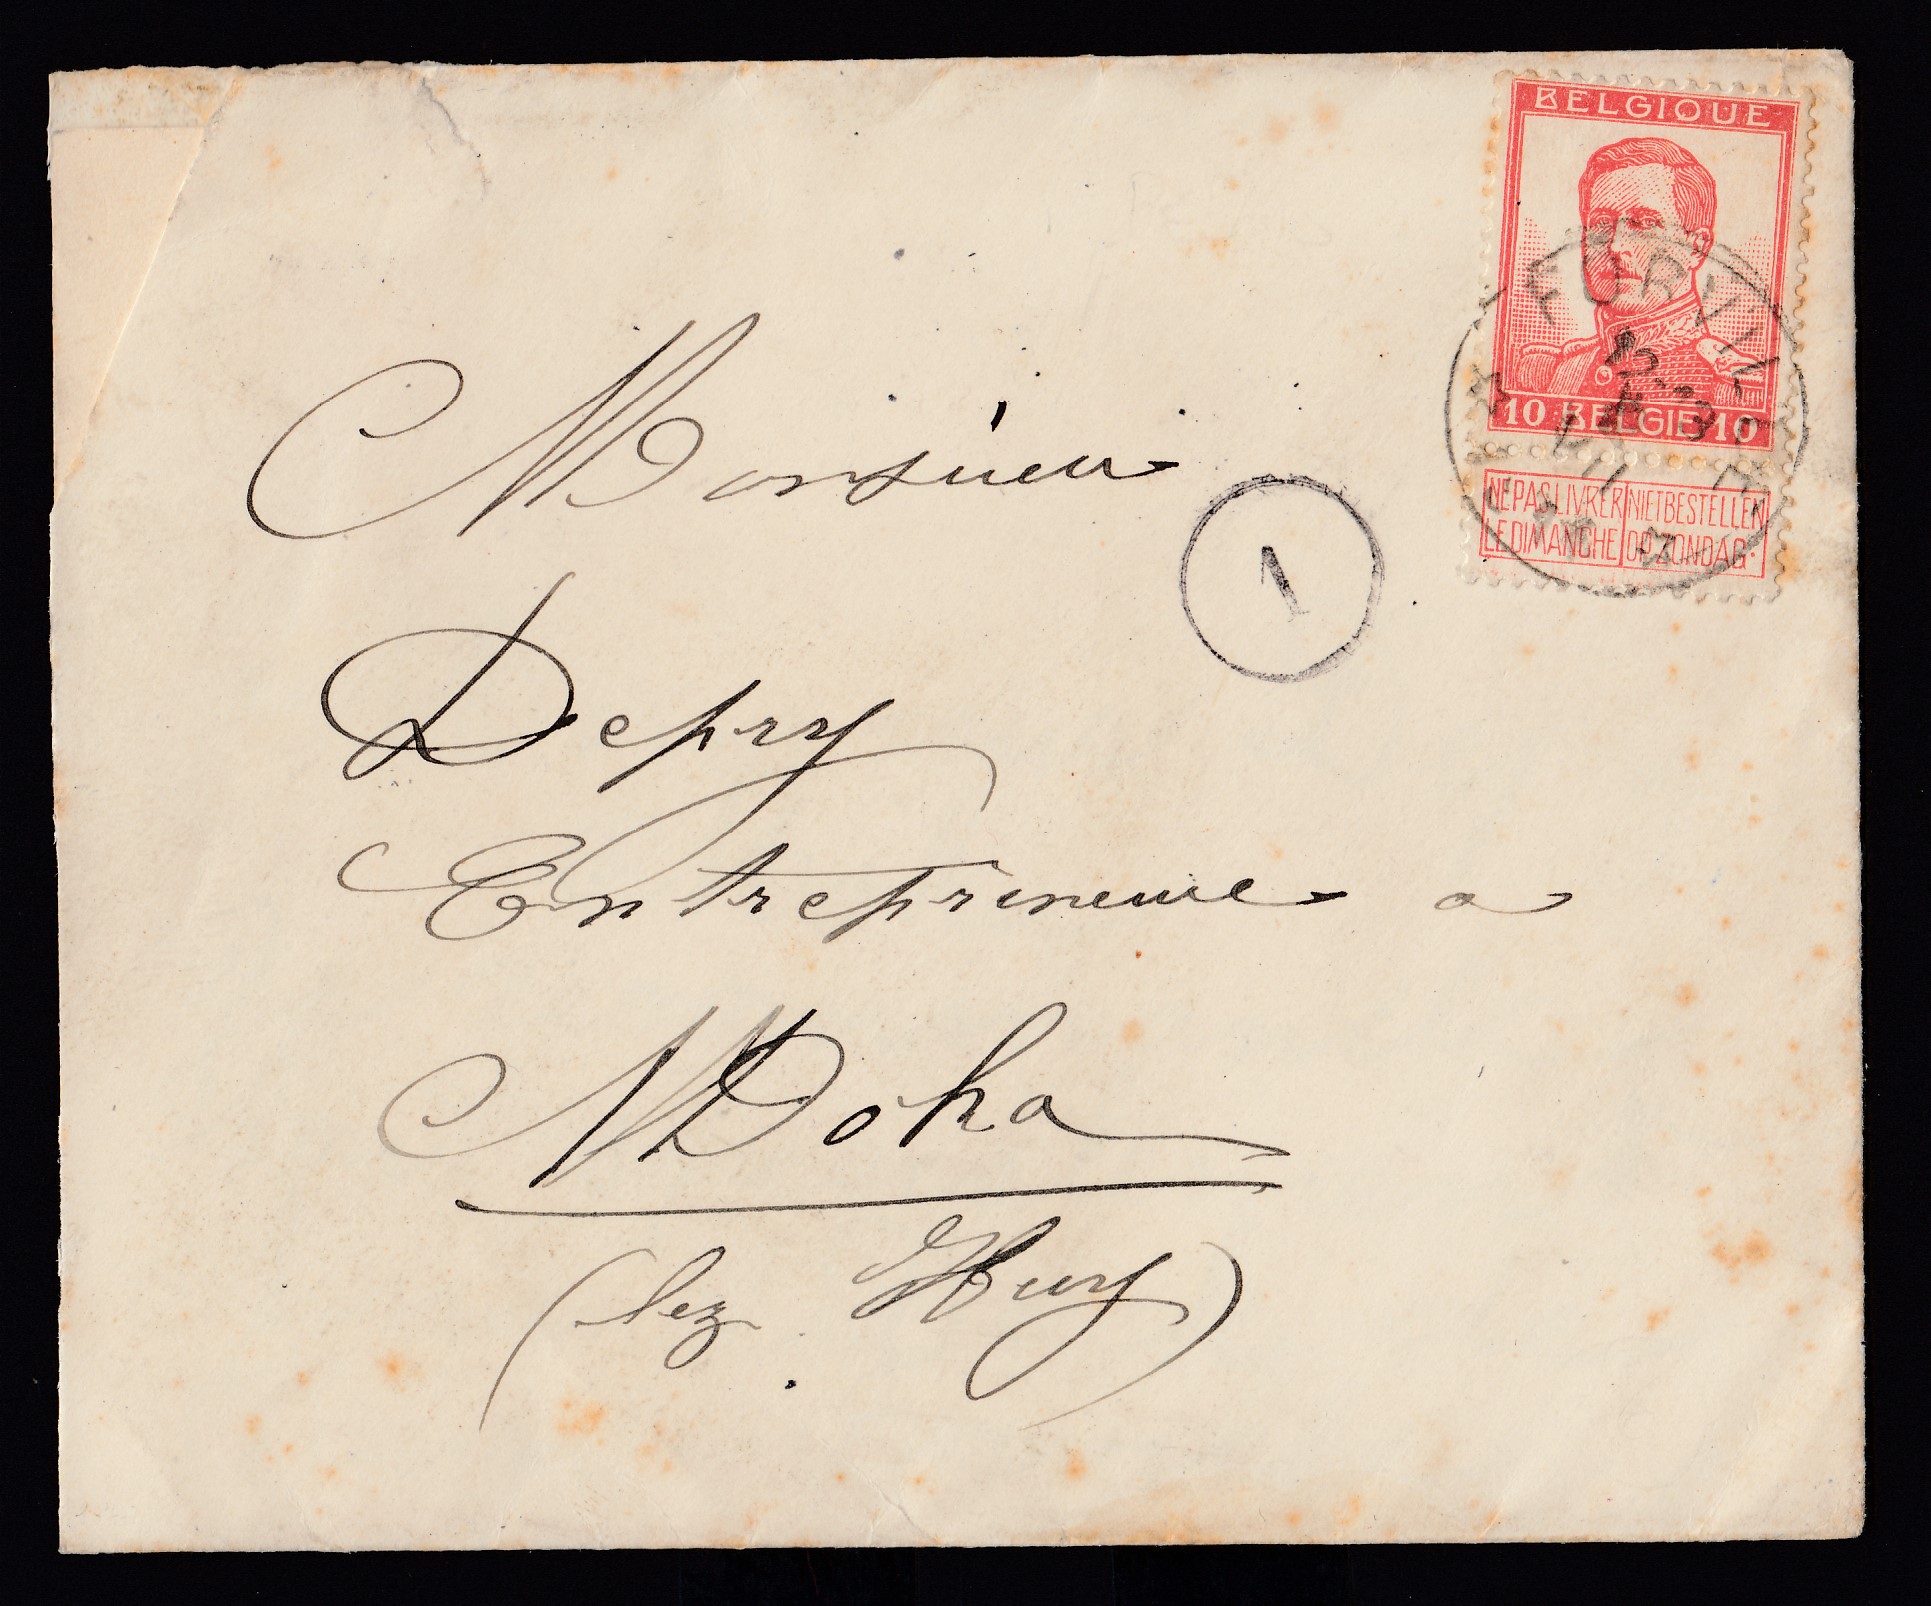 BELGIQUE
10 BELGIE 10
NE PAS LIVRER LE DIMANCHE
NIET BESTELLEN OP ZONDAG.
FORVILLE
1
Monsieur
Depry
Entrepreneur a
Moha
(lez Huy)